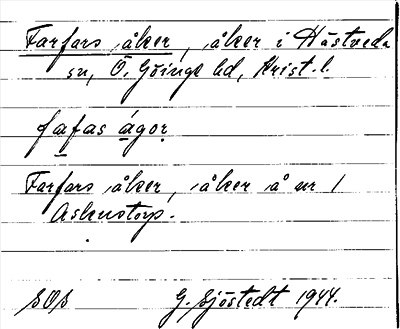 Farfars åker, åker i Hästveda
sn, Ö. Göinge hd, Krist. l.
fafas ágor
Farfars åker, åker å nr 1
Askustorp.
SOS G. Sjöstedt 1944.